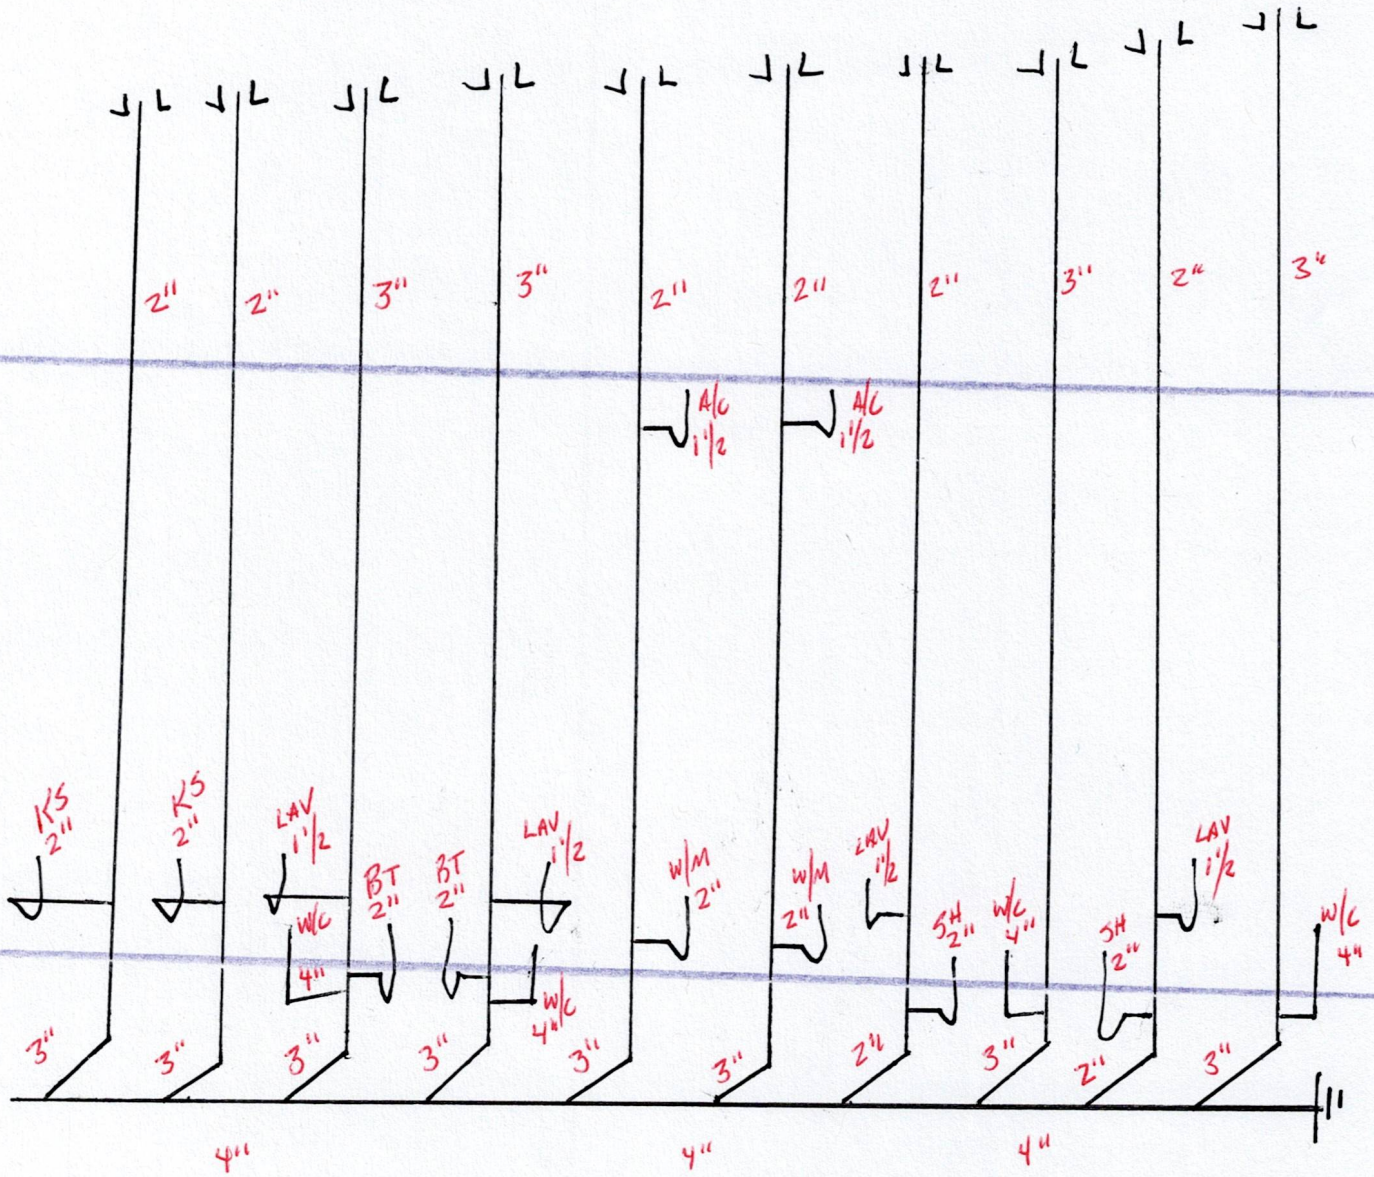 2"
2"
3"
3"
2"
2"
2"
3"
2"
3"
A/C
1 1/2
A/C
1 1/2
KS
2"
KS
2"
LAV
1 1/2
W/C
4"
BT
2"
BT
2"
LAV
1 1/2
W/C
4"
W/M
2"
W/M
2"
LAV
1 1/2
SH
2"
W/C
4"
SH
2"
LAV
1 1/2
W/C
4"
3"
3"
3"
3"
3"
3"
2"
3"
2"
3"
4"
4"
4"